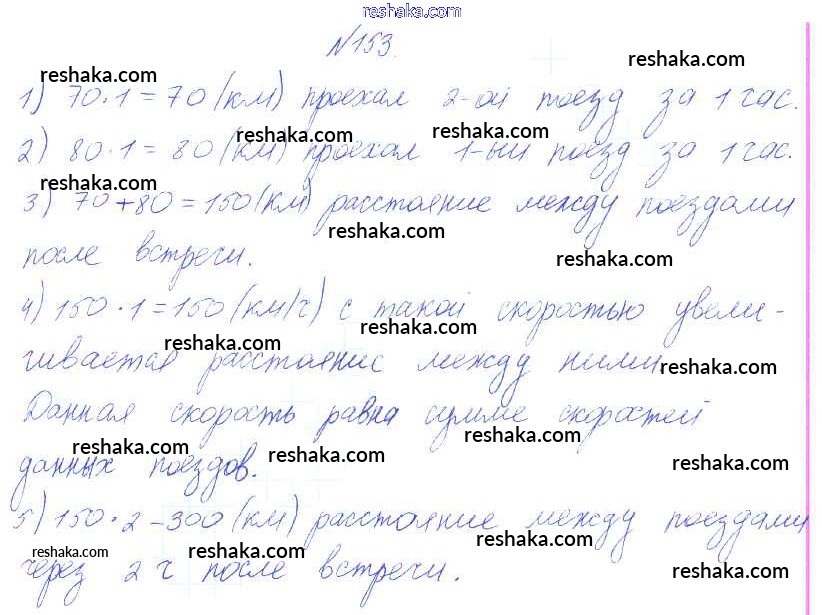 reshaka.com
№153.
reshaka.com reshaka.com
1) 70·1=70 (км) проехал 2-ой поезд за 1 час.
reshaka.com reshaka.com
2) 80·1=80 (км) проехал 1-ый поезд за 1 час.
reshaka.com
3) 70+80=150 (км) расстояние между поездами
reshaka.com
после встречи.
reshaka.com
4) 150·1=150 (км/ч) с такой скоростью увели-
reshaka.com reshaka.com
чивается расстояние между ними.
reshaka.com
Данная скорость равна сумме скоростей
reshaka.com reshaka.com
данных поездов.
reshaka.com reshaka.com
5) 150·2-300 (км) расстояние между поездами
reshaka.com reshaka.com reshaka.com
через 2 ч после встречи.
reshaka.com